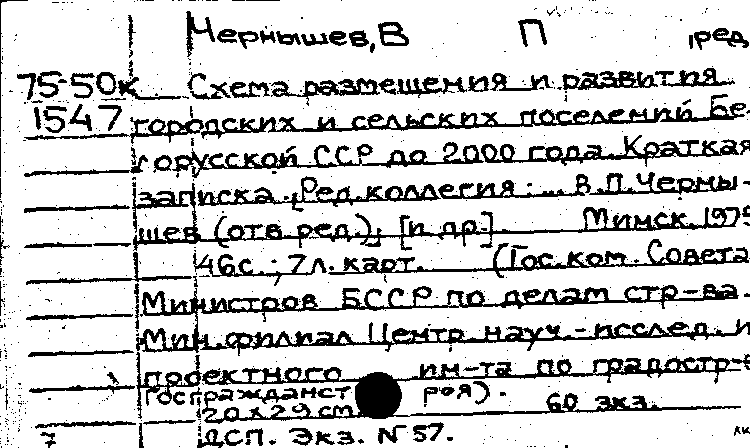 Чернышев, В П , ред
75-50к Схема размещения и развития
1547 городских и сельских поселений Бе-
лорусской ССР до 2000 года. Краткая
записка. [Ред.коллегия: ... В.П.Черны-
шев (отв ред.), [и др.]. Минск, 1975
46с.; 7л. карт. (Гос.ком. Совета
Министров БССР по делам стр-ва.
Мин.филиал Центр. науч.-исслед. и
проектного ин-та по градостр-
Госгражданст роя). 60 экз.
20х29 cm
7 ДСП. Экз. N 57.